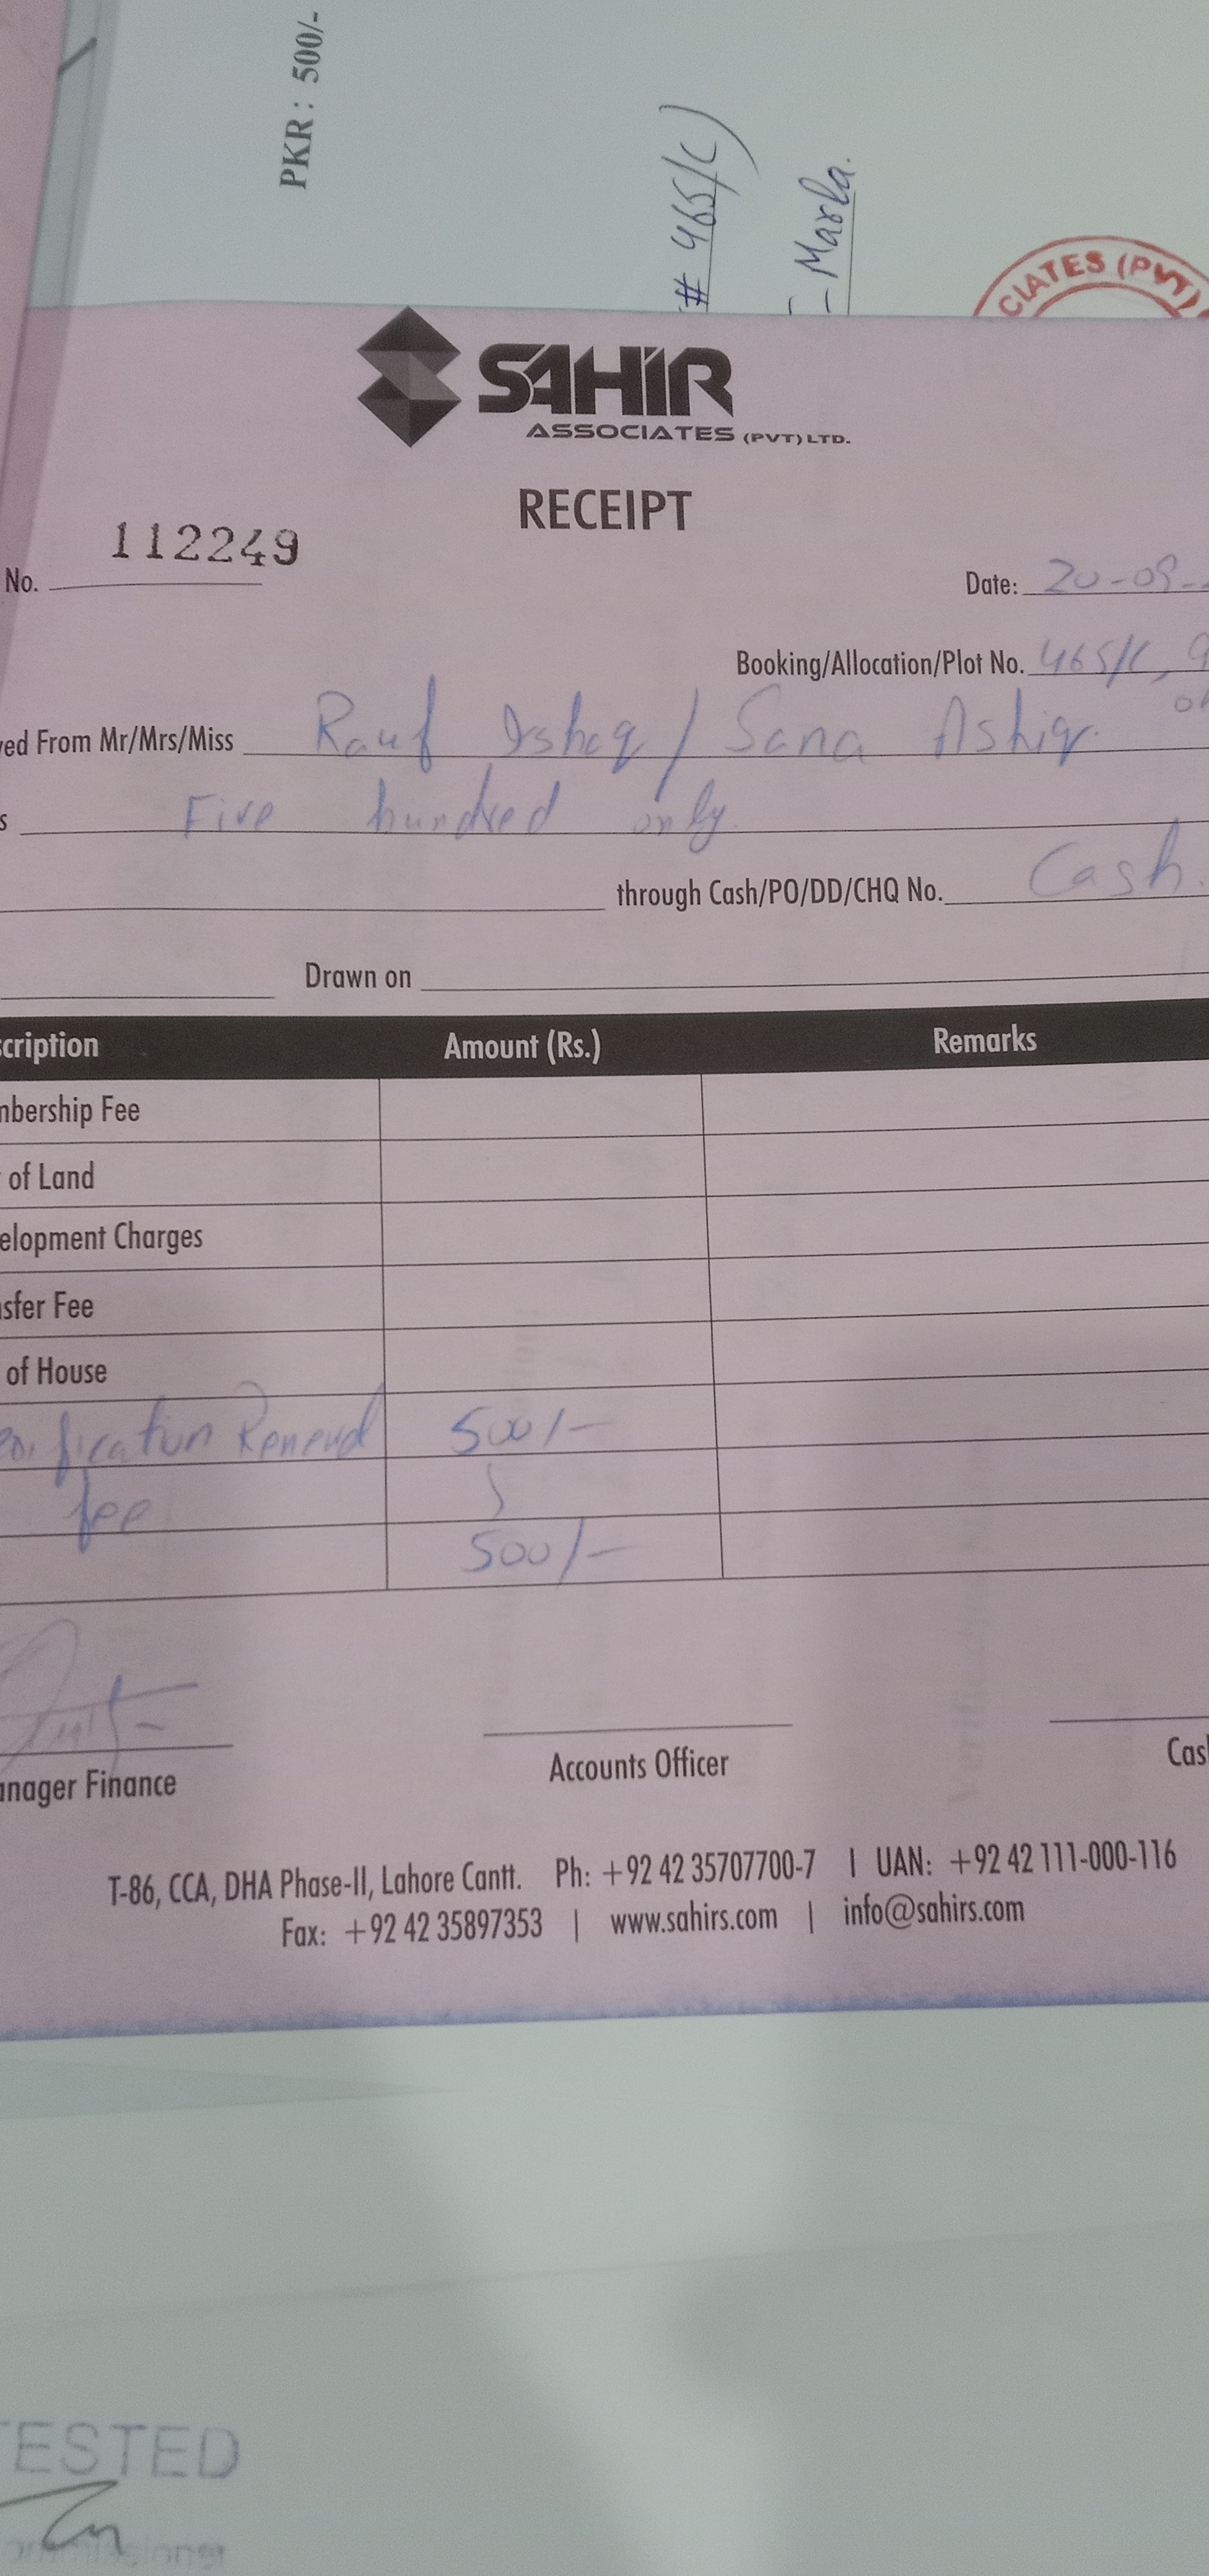 PKR : 500/-
# 465/C)
- Marla.
CIATES (PVT)
SAHIR
ASSOCIATES (PVT) LTD.
RECEIPT
No. 112249
Date: 20-09-
Booking/Allocation/Plot No. 465/C, 9
ved From Mr/Mrs/Miss Rauf Ishaq / Sana Ashiq.
s Five hundred only.
through Cash/PO/DD/CHQ No. Cash.
Drawn on
cription Amount (Rs.) Remarks
nbership Fee
of Land
elopment Charges
sfer Fee
of House
Renewal 500/-
fee
500/-
anager Finance Accounts Officer Cas
T-86, CCA, DHA Phase-II, Lahore Cantt. Ph: +92 42 35707700-7 | UAN: +92 42 111-000-116
Fax: +92 42 35897353 | www.sahirs.com | info@sahirs.com
TESTED